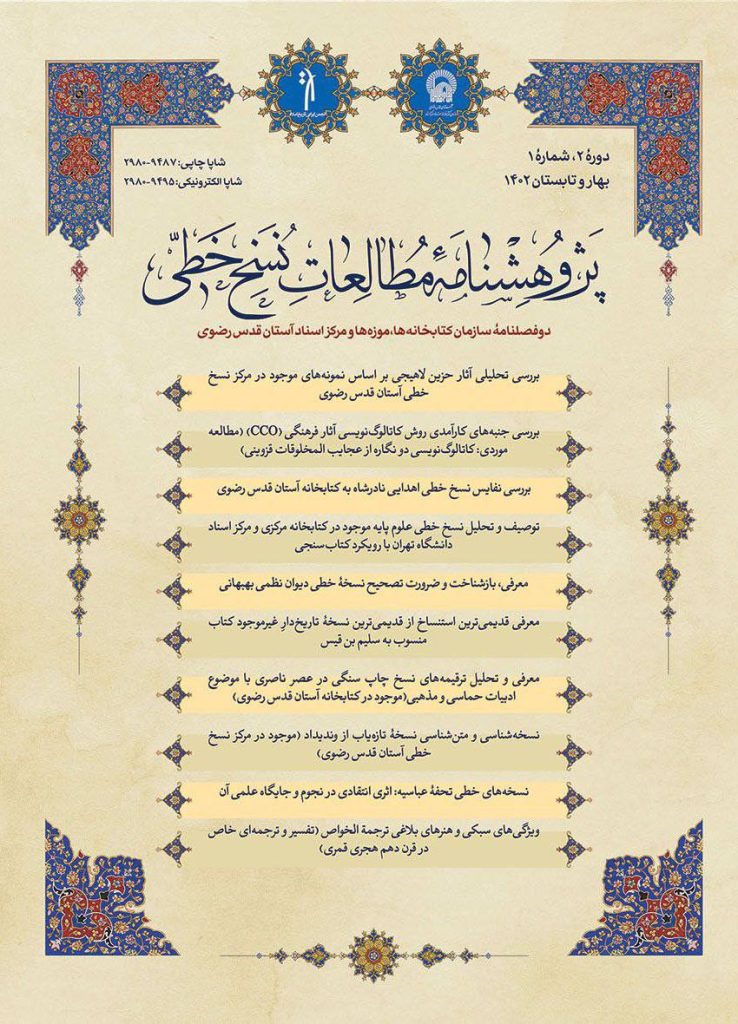 دورهٔ ۲، شمارهٔ ۱
بهار و تابستان ۱۴۰۲
شاپا چاپی: ۹۴۸۷-۲۹۸۰
شاپا الکترونیکی: ۹۴۹۵-۲۹۸۰
پَژوهِشنامَهٔ مُطالِعاتِ نُسَخِ خَطّی
دوفصلنامهٔ سازمان کتابخانه‌ها، موزه‌ها و مرکز اسناد آستان قدس رضوی
بررسی تحلیلی آثار حزین لاهیجی بر اساس نمونه‌های موجود در مرکز نسخ
خطی آستان قدس رضوی
بررسی جنبه‌های کارآمدی روش کاتالوگ‌نویسی آثار فرهنگی (CCO) (مطالعه
موردی: کاتالوگ‌نویسی دو نگاره از عجایب المخلوقات قزوینی)
بررسی نفایس نسخ خطی اهدایی نادرشاه به کتابخانه آستان قدس رضوی
توصیف و تحلیل نسخ خطی علوم پایه موجود در کتابخانه مرکزی و مرکز اسناد
دانشگاه تهران با رویکرد کتاب‌سنجی
معرفی، بازشناخت و ضرورت تصحیح نسخهٔ خطی دیوان نظمی بهبهانی
معرفی قدیمی‌ترین استنساخ از قدیمی‌ترین نسخهٔ تاریخ‌دارِ غیرموجود کتاب
منسوب به سلیم بن قیس
معرفی و تحلیل ترقیمه‌های نسخ چاپ سنگی در عصر ناصری با موضوع
ادبیات حماسی و مذهبی(موجود در کتابخانه آستان قدس رضوی)
نسخه‌شناسی و متن‌شناسی نسخهٔ تازه‌یاب از وندیداد (موجود در مرکز نسخ
خطی آستان قدس رضوی)
نسخه‌های خطی تحفهٔ عباسیه: اثری انتقادی در نجوم و جایگاه علمی آن
ویژگی‌های سبکی و هنرهای بلاغی ترجمة الخواص (تفسیر و ترجمه‌ای خاص
در قرن دهم هجری قمری)